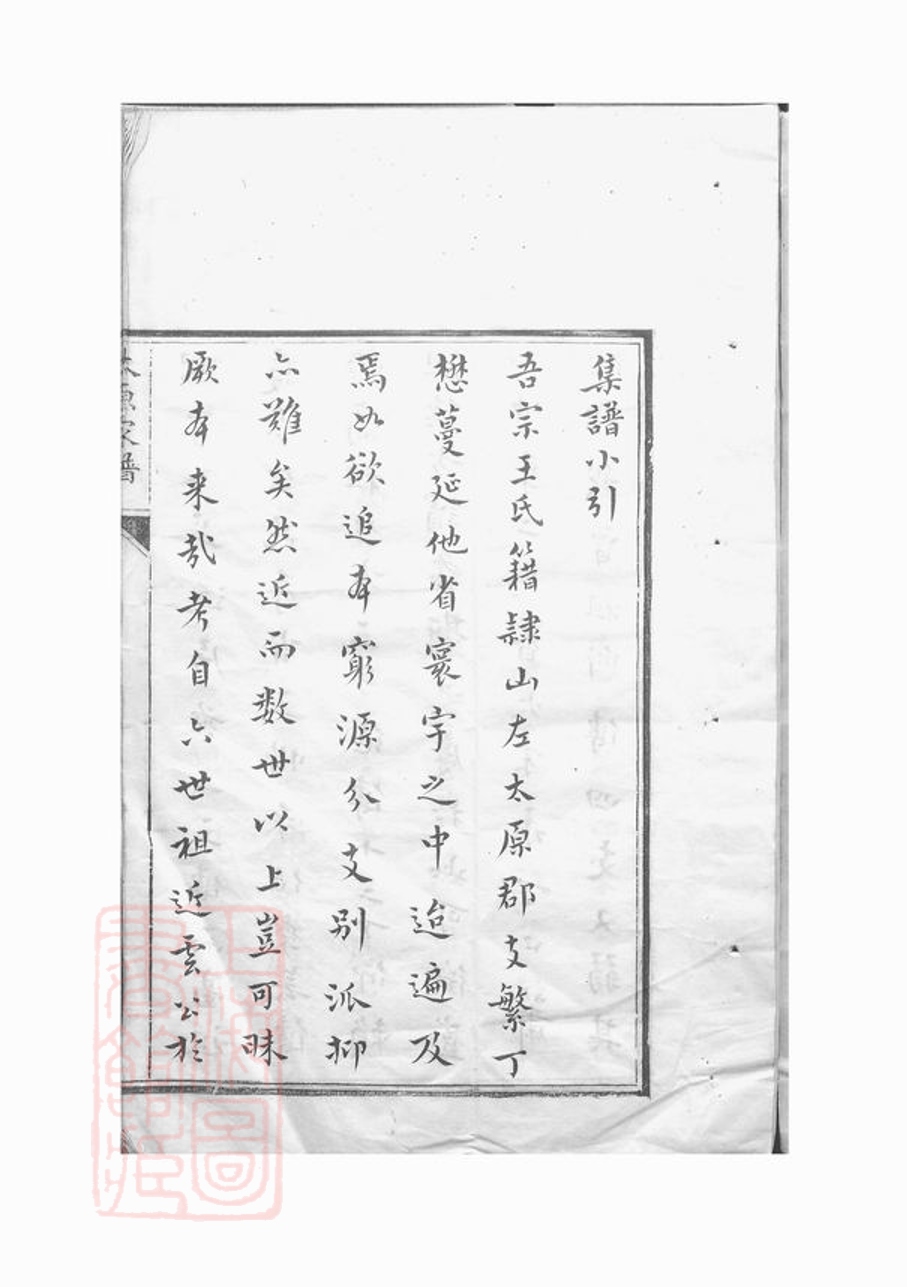 集譜小引
吾宗王氏籍隸山左太原郡支繁丁
懋蔓延他省寰宇之中迨遍及
焉如欲追本窮源分支別派抑
亦難矣然近而数世以上豈可昧
厥本来哉考自六世祖近雲公於
太原家譜